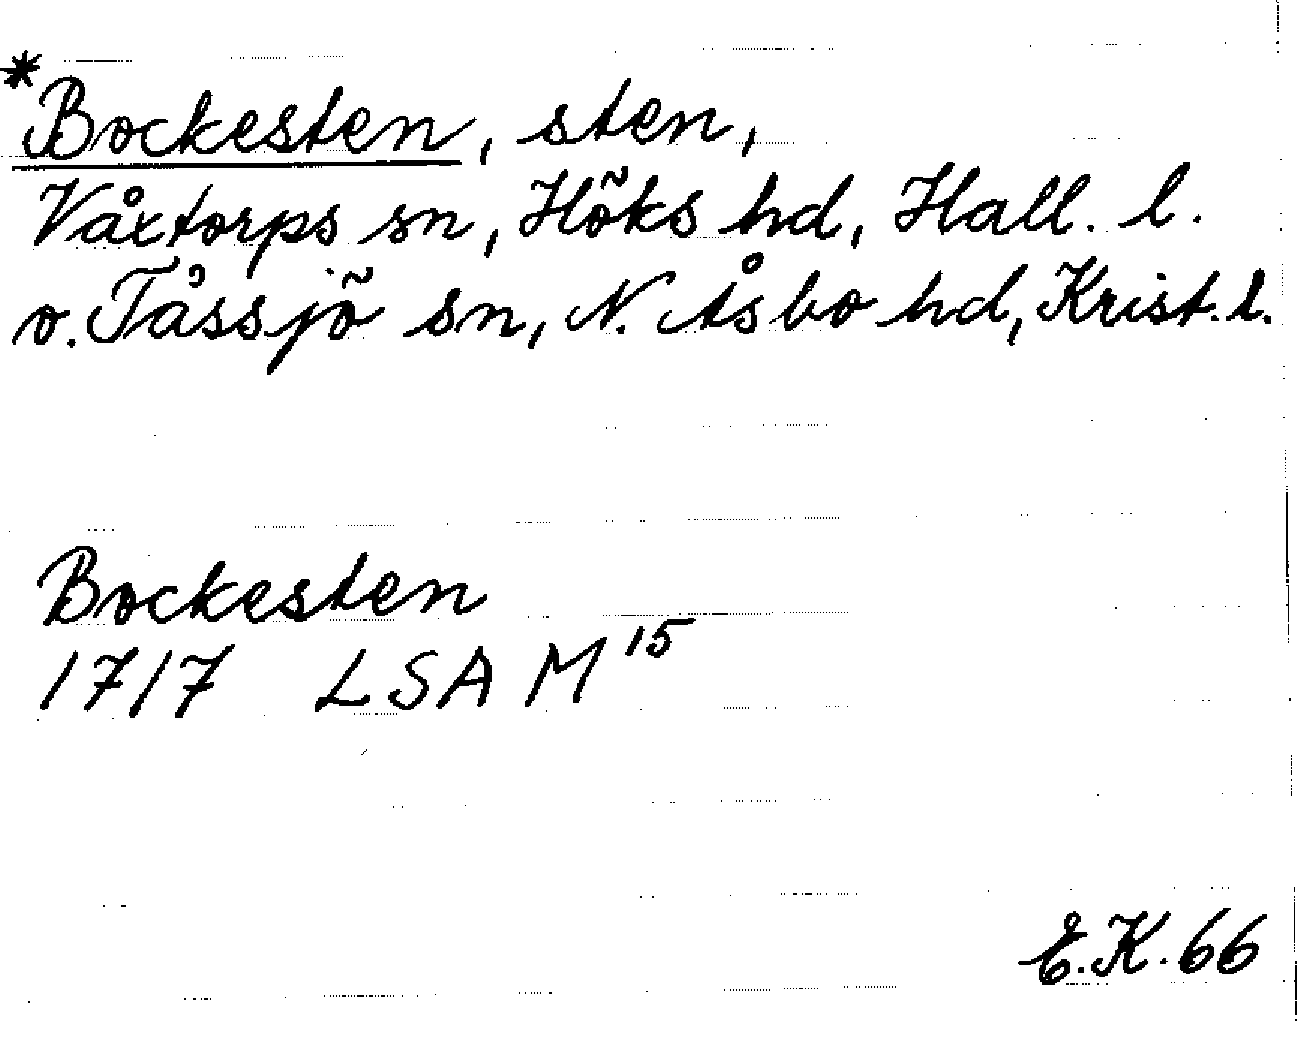 *Bockesten, sten,
Våxtorps sn, Höks hd, Hall. l.
o. Tåssjö sn, N. Åsbo hd, Krist. l.
Bockesten
1717 LSA M15
E.K. 66